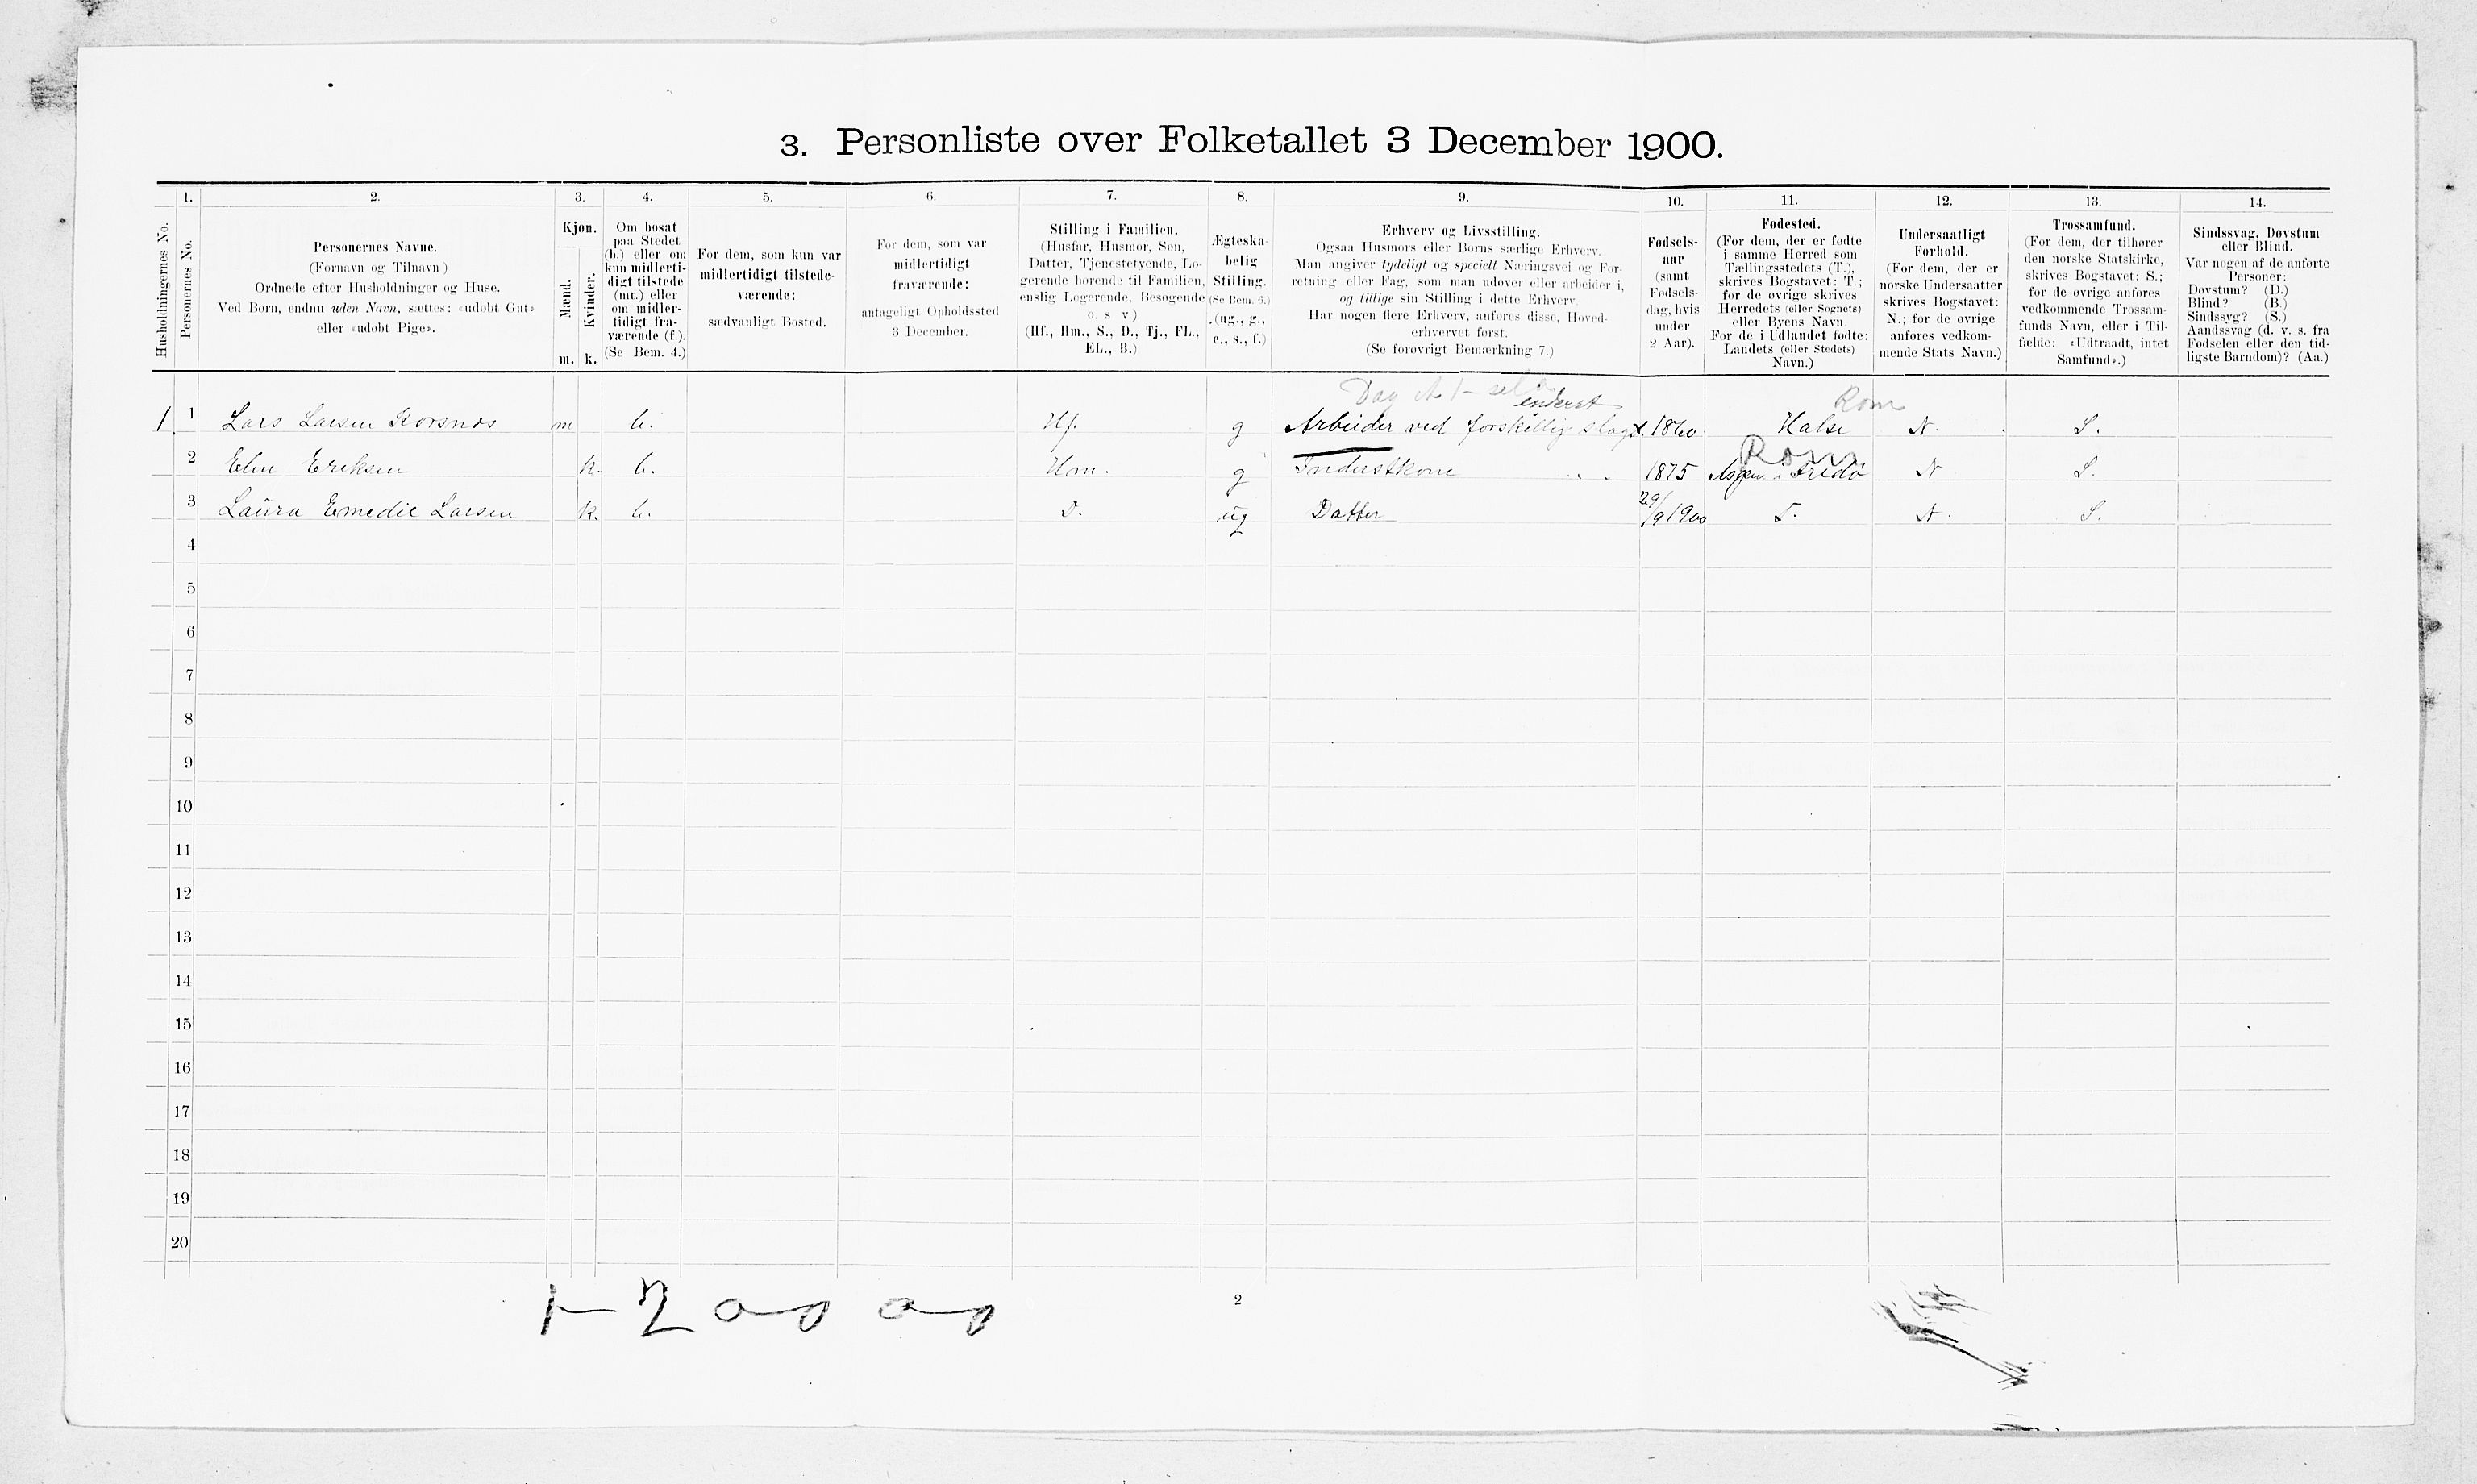 3. Personliste over Folketallet 3 December 1900.
Husholdningernes No.
1.
Personernes No.
2.
Personernes Navne.
(Fornavn og Tilnavn)
Ordnede efter Husholdninger og Huse.
Ved Børn, endnu uden Navn, sættes: «udøbt Gut»
eller «udøbt Pige».
3.
Kjøn.
Mænd.
Kvinder.
m. k.
4.
Om bosat
paa Stedet
(b.) eller om
kun midlerti-
digt tilstede
(mt.) eller
om midler-
tidigt fra-
værende (f.).
(Se Bem. 4.)
5.
For dem, som kun var
midlertidigt tilstede-
værende:
sædvanligt Bosted.
6.
For dem, som var
midlertidigt
fraværende:
antageligt Opholdssted
3 December.
7.
Stilling i Familien.
(Husfar, Husmor, Søn,
Datter, Tjenestetyende, Lo-
gerende hørende til Familien,
enslig Logerende, Besøgende
o. s. v.)
(Hf., Hm., S., D., Tj., FL.,
EL., B.)
8.
Ægteska-
belig
Stilling.
(Se Bem. 6.)
(ug., g.,
e., s., f.)
9.
Erhverv og Livsstilling.
Ogsaa Husmors eller Børns særlige Erhverv.
Man angiver tydeligt og specielt Næringsvei og For-
retning eller Fag, som man udøver eller arbeider i,
og tillige sin Stilling i dette Erhverv.
Har nogen flere Erhverv, anføres disse, Hoved-
erhvervet først.
(Se forøvrigt Bemærkning 7.)
10.
Fødsels-
aar
(samt
Fødsels-
dag, hvis
under
2 Aar).
11.
Fødested.
(For dem, der er fødte
i samme Herred som
Tællingsstedets (T.),
skrives Bogstavet: T.;
for de øvrige skrives
Herredets (eller Sognets)
eller Byens Navn.
For de i Udlandet fødte:
Landets (eller Stedets)
Navn.)
12.
Undersaatligt
Forhold.
(For dem, der er
norske Undersaatter
skrives Bogstavet:
N.; for de øvrige
anføres vedkom-
mende Stats Navn.)
13.
Trossamfund.
(For dem, der tilhører
den norske Statskirke,
skrives Bogstavet: S.;
for de øvrige anføres
vedkommende Trossam-
funds Navn, eller i Til-
fælde: «Udtraadt, intet
Samfund».)
14.
Sindssvag, Døvstum
eller Blind.
Var nogen af de anførte
Personer:
Døvstum? (D.)
Blind? (B.)
Sindssyg? (S.)
Aandssvag (d. v. s. fra
Fødselen eller den tid-
ligste Barndom)? (Aa.)
Dag
inderst Rom
1 1 Lars Larsen Korsnes m b. Hf. g Arbeider ved forskellig slags 1860 Halse N. S.
Rom
2 Elen Eriksen k. b. Hm. g Inderstkone 1875 N S.
3 Laura Emedie Larsen k. b. D. ug Datter 29/9 1900 T. N. S.
4
5
6
7
8
9
10
11
12
13
14
15
16
17
18
19
20
2